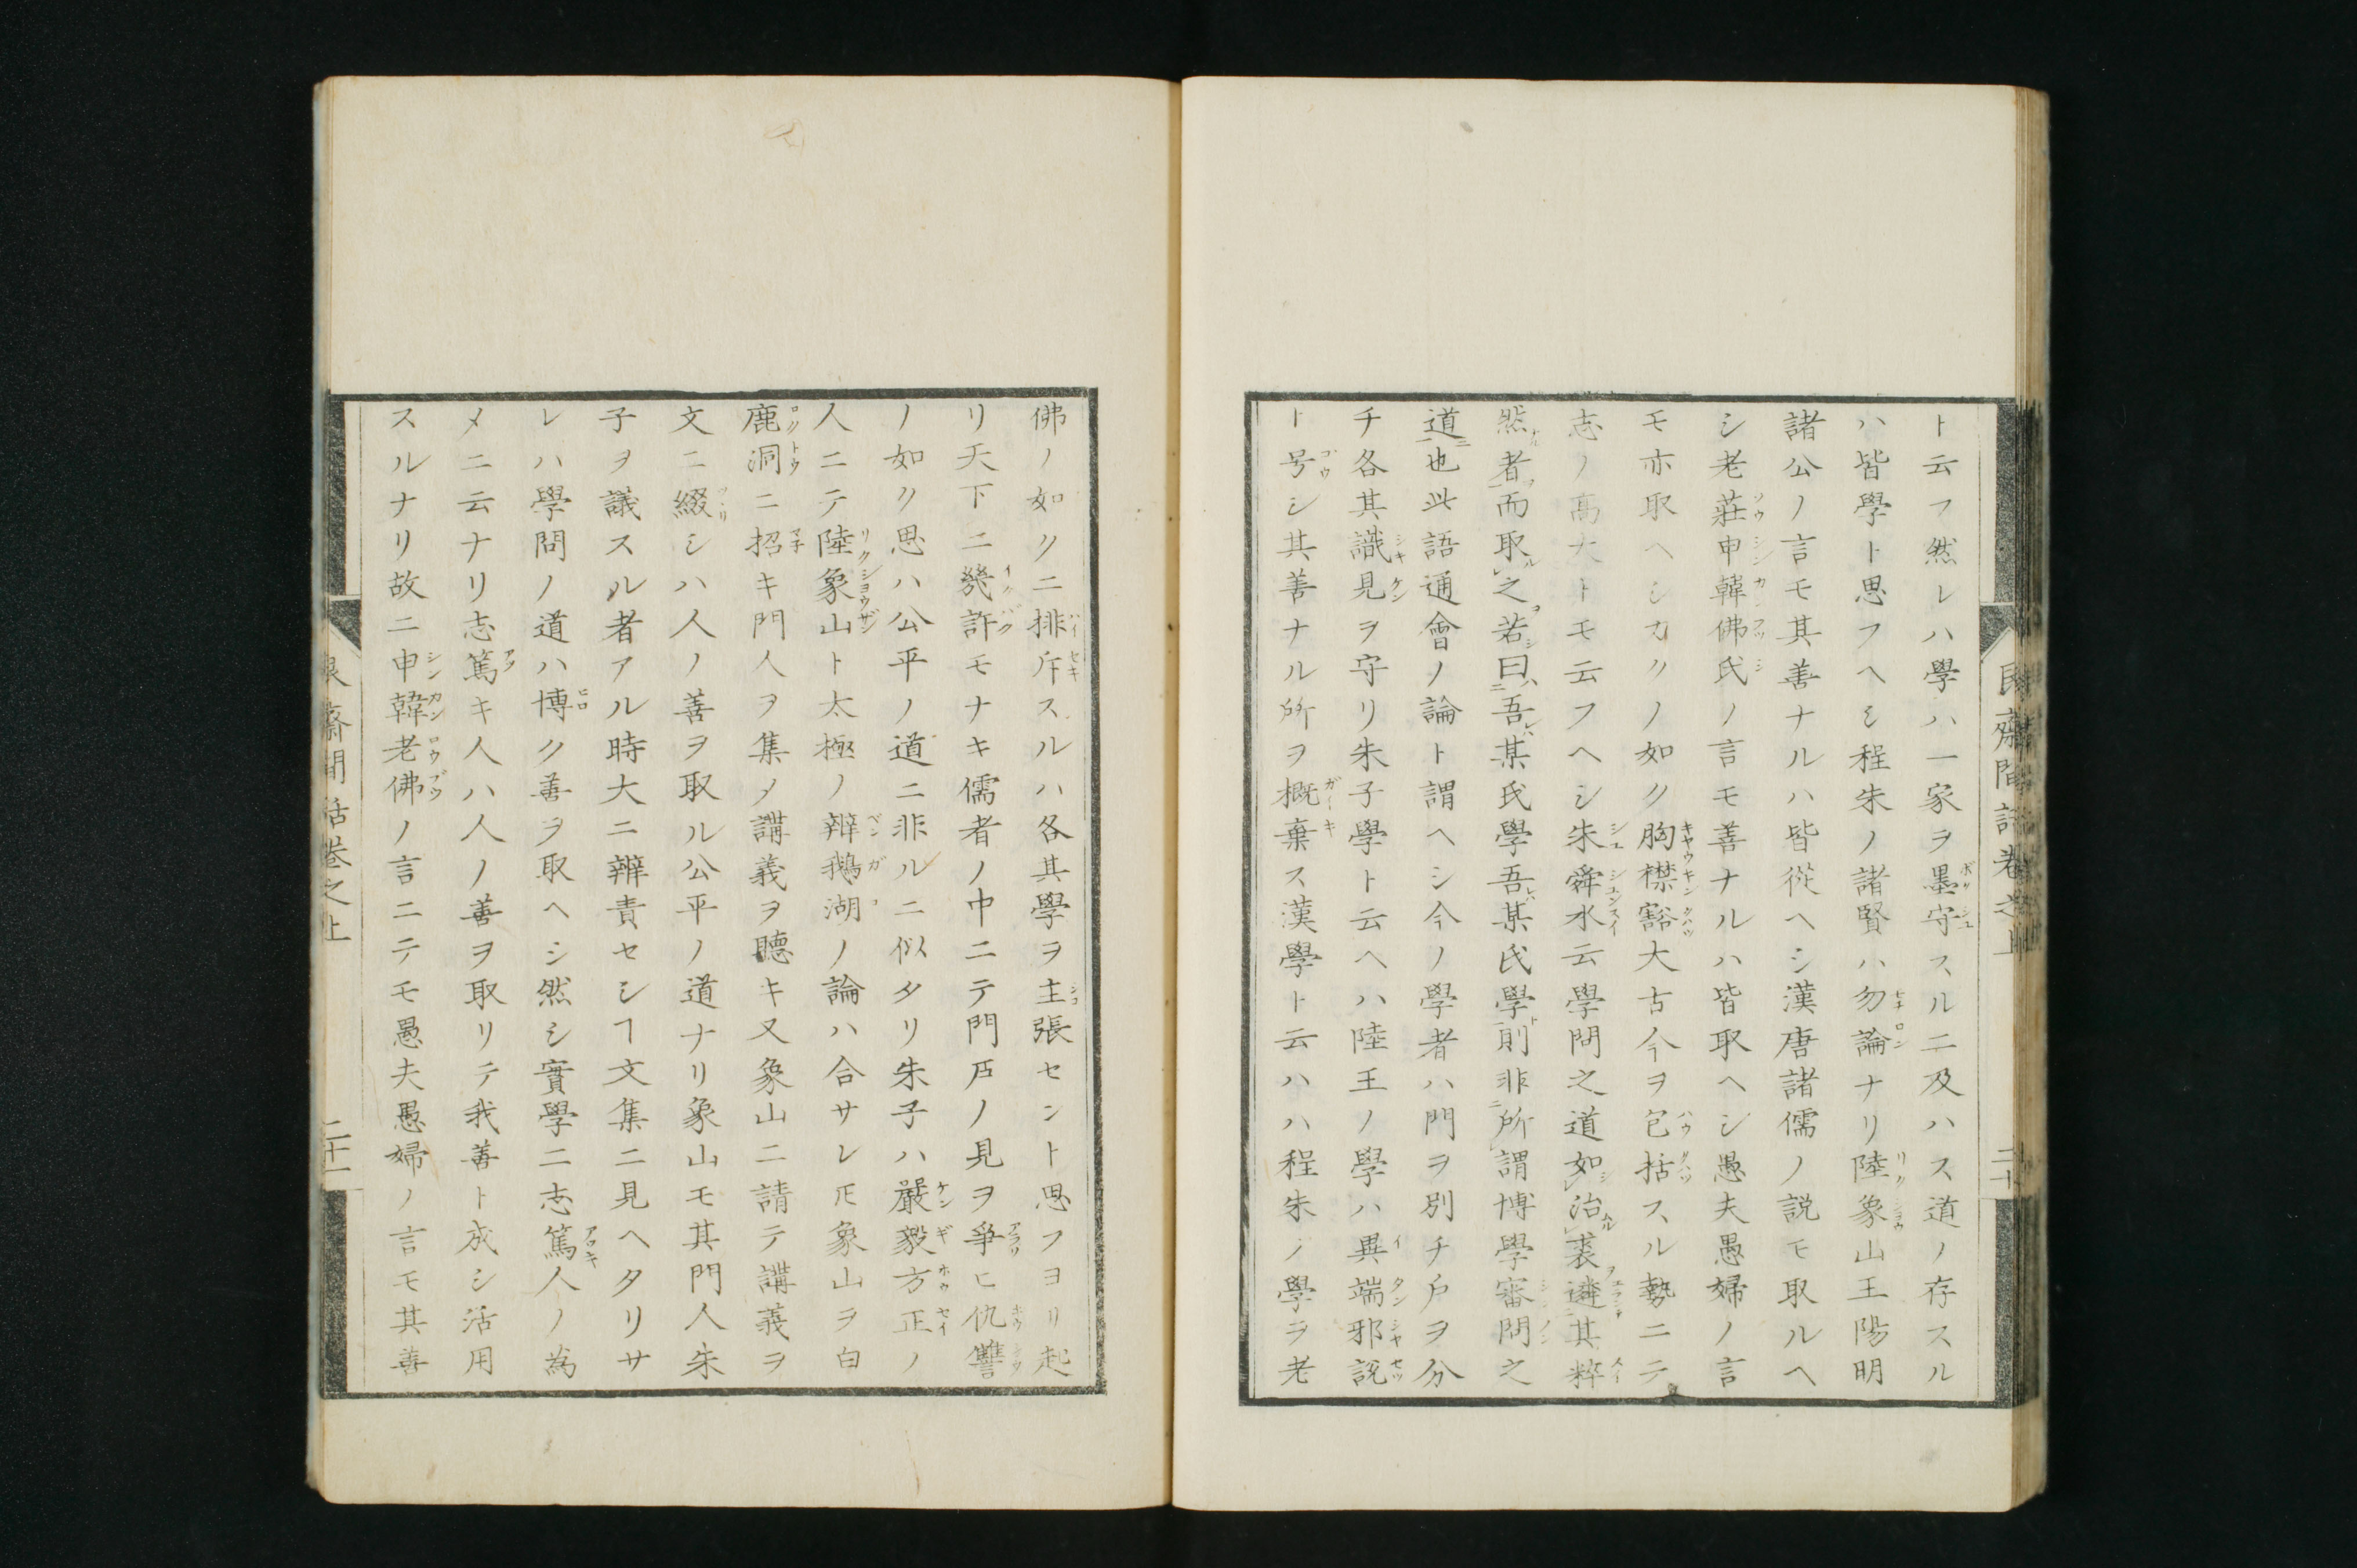 ト云フ然レハ學ハ一家ヲ墨守スルニ及ハス道ノ存スル
ハ皆學ト思フヘシ程朱ノ諸賢ハ勿論ナリ陸象山王陽明
諸公ノ言モ其善ナルハ皆從ヘシ漢唐諸儒ノ説モ取ルヘ
シ老莊申韓佛氏ノ言モ善ナルハ皆取ヘシ愚夫愚婦ノ言
モ亦取ヘシカクノ如ク胸襟豁大古今ヲ包括スル勢ニテ
志ノ髙大トモ云フヘシ朱舜水云學問之道如治裘遴其粹
然者而取之若曰吾某氏學吾某氏學則非所謂博學審問之
道也此語通會ノ論ト謂ヘシ今ノ學者ハ門ヲ別チ戸ヲ分
チ各其識見ヲ守リ朱子學ト云ヘハ陸王ノ學ハ異端邪説
ト号シ其善ナル所ヲ概棄ス漢學ト云ハハ程朱ノ學ヲ老
良齋間話卷之上
二十
佛ノ如クニ排斥スルハ各其學ヲ主張セント思フヨリ起
リ天下ニ幾許モナキ儒者ノ中ニテ門戸ノ見ヲ爭ヒ仇讐
ノ如ク思ハ公平ノ道ニ非ルニ似タリ朱子ハ嚴毅方正ノ
人ニテ陸象山ト太極ノ辯鵝湖ノ論ハ合サレ𪜈象山ヲ白
鹿洞ニ招キ門人ヲ集メ講義ヲ聽キ又象山ニ請テ講義ヲ
文ニ綴シハ人ノ善ヲ取ル公平ノ道ナリ象山モ其門人朱
子ヲ議スル者アル時大ニ辯責セシヿ文集ニ見ヘタリサ
レハ學問ノ道ハ博ク善ヲ取ヘシ然シ實學ニ志篤人ノ爲
メニ云ナリ志篤キ人ハ人ノ善ヲ取リテ我善ト成シ活用
スルナリ故ニ申韓老佛ノ言ニテモ愚夫愚婦ノ言モ其善
良齋間話卷之上
二十一